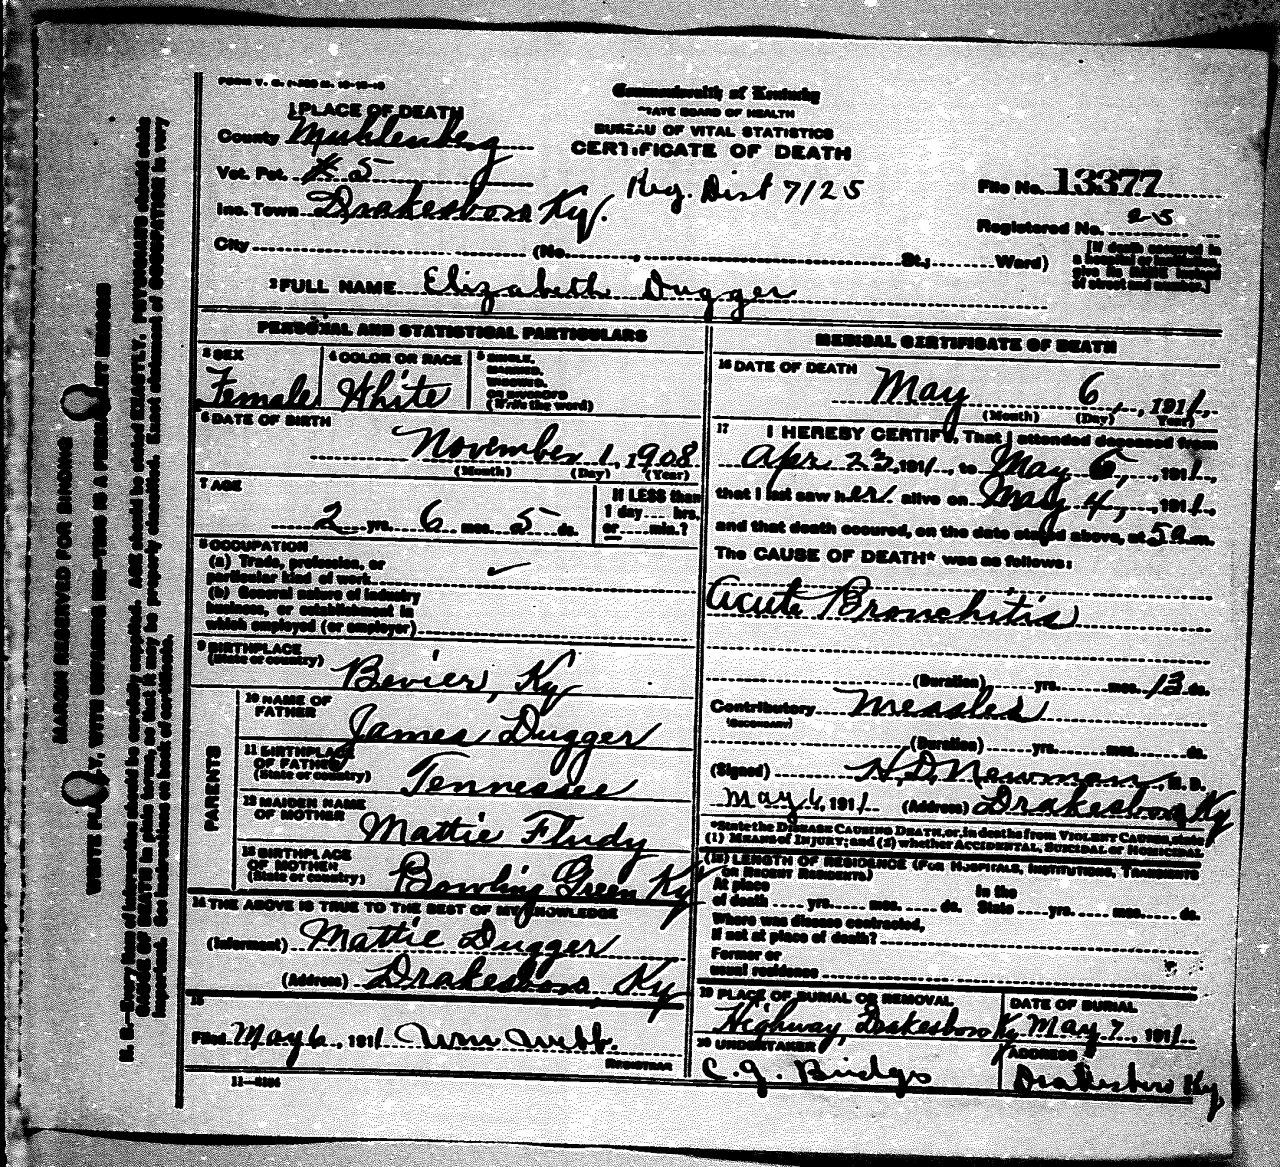 1 PLACE OF DEATH
County Muhlenberg
Vot. Pct. # 5
Inc. Town Drakesboro Ky.
City (No. , St.; Ward)
Commonwealth of Kentucky
STATE BOARD OF HEALTH
BUREAU OF VITAL STATISTICS
CERTIFICATE OF DEATH
Reg. Dist 7125
File No. 13377
Registered No. 25
[If death occurred in
a hospital or institution,
give its NAME instead
of street and number.]
2 FULL NAME Elizabeth Dugger
PERSONAL AND STATISTICAL PARTICULARS
3 SEX
Female
4 COLOR OR RACE
White
5 SINGLE,
MARRIED,
WIDOWED,
OR DIVORCED
(Write the word)
6 DATE OF BIRTH
November 1, 1908
(Month) (Day) (Year)
7 AGE
2 yrs. 6 mos. 5 ds.
If LESS than
1 day hrs.
or min.?
8 OCCUPATION
(a) Trade, profession, or
particular kind of work
(b) General nature of industry
business, or establishment in
which employed (or employer)
9 BIRTHPLACE
(State or country)
Bevier, Ky
PARENTS
10 NAME OF
FATHER
James Dugger
11 BIRTHPLACE
OF FATHER
(State or country)
Tennessee
12 MAIDEN NAME
OF MOTHER
Mattie Fludy
13 BIRTHPLACE
OF MOTHER
(State or country)
Bowling Green Ky
14 THE ABOVE IS TRUE TO THE BEST OF MY KNOWLEDGE
(Informant) Mattie Dugger
(Address) Drakesboro, Ky
15
Filed May 6, 1911 Wm Webb.
REGISTRAR
MEDICAL CERTIFICATE OF DEATH
16 DATE OF DEATH
May 6, 1911,
(Month) (Day) Year)
17 I HEREBY CERTIFY, That I attended deceased from
Apr 23, 1911, to May 6, 1911,
that I last saw her alive on May 4, 1911,
and that death occured, on the date stated above, at 5 a m.
The CAUSE OF DEATH* was as follows:
Acute Bronchitis
(Duration) yrs. mos. 13 ds.
Contributory Measles
(SECONDARY)
(Duration) yrs. mos. ds.
(Signed) H. D. Newman, M. D.
May 6, 1911 (Address) Drakesboro Ky
*State the DISEASE CAUSING DEATH, or, in deaths from VIOLENT CAUSES, state
(1) MEANS OF INJURY; and (2) whether ACCIDENTAL, SUICIDAL or HOMICIDAL
(18) LENGTH OF RESIDENCE (FOR HOSPITALS, INSTITUTIONS, TRANSIENTS
OR RECENT RESIDENTS)
At place In the
of death yrs. mos. ds. State yrs. mos. ds.
Where was disease contracted,
if not at place of death?
Former or
usual residence
19 PLACE OF BURIAL OR REMOVAL
Highway, Drakesboro Ky
DATE OF BURIAL
May 7, 1911
20 UNDERTAKER
C. J. Bridges
ADDRESS
Drakesboro Ky
11—8184
MARGIN RESERVED FOR BINDING
WRITE PLAINLY, WITH UNFADING INK—THIS IS A PERMANENT RECORD
N. B.—Every item of information should be carefully supplied. AGE should be stated EXACTLY. PHYSICIANS should state
CAUSE OF DEATH in plain terms, so that it may be properly classified. Exact statement of OCCUPATION is very
important. See instructions on back of certificate.